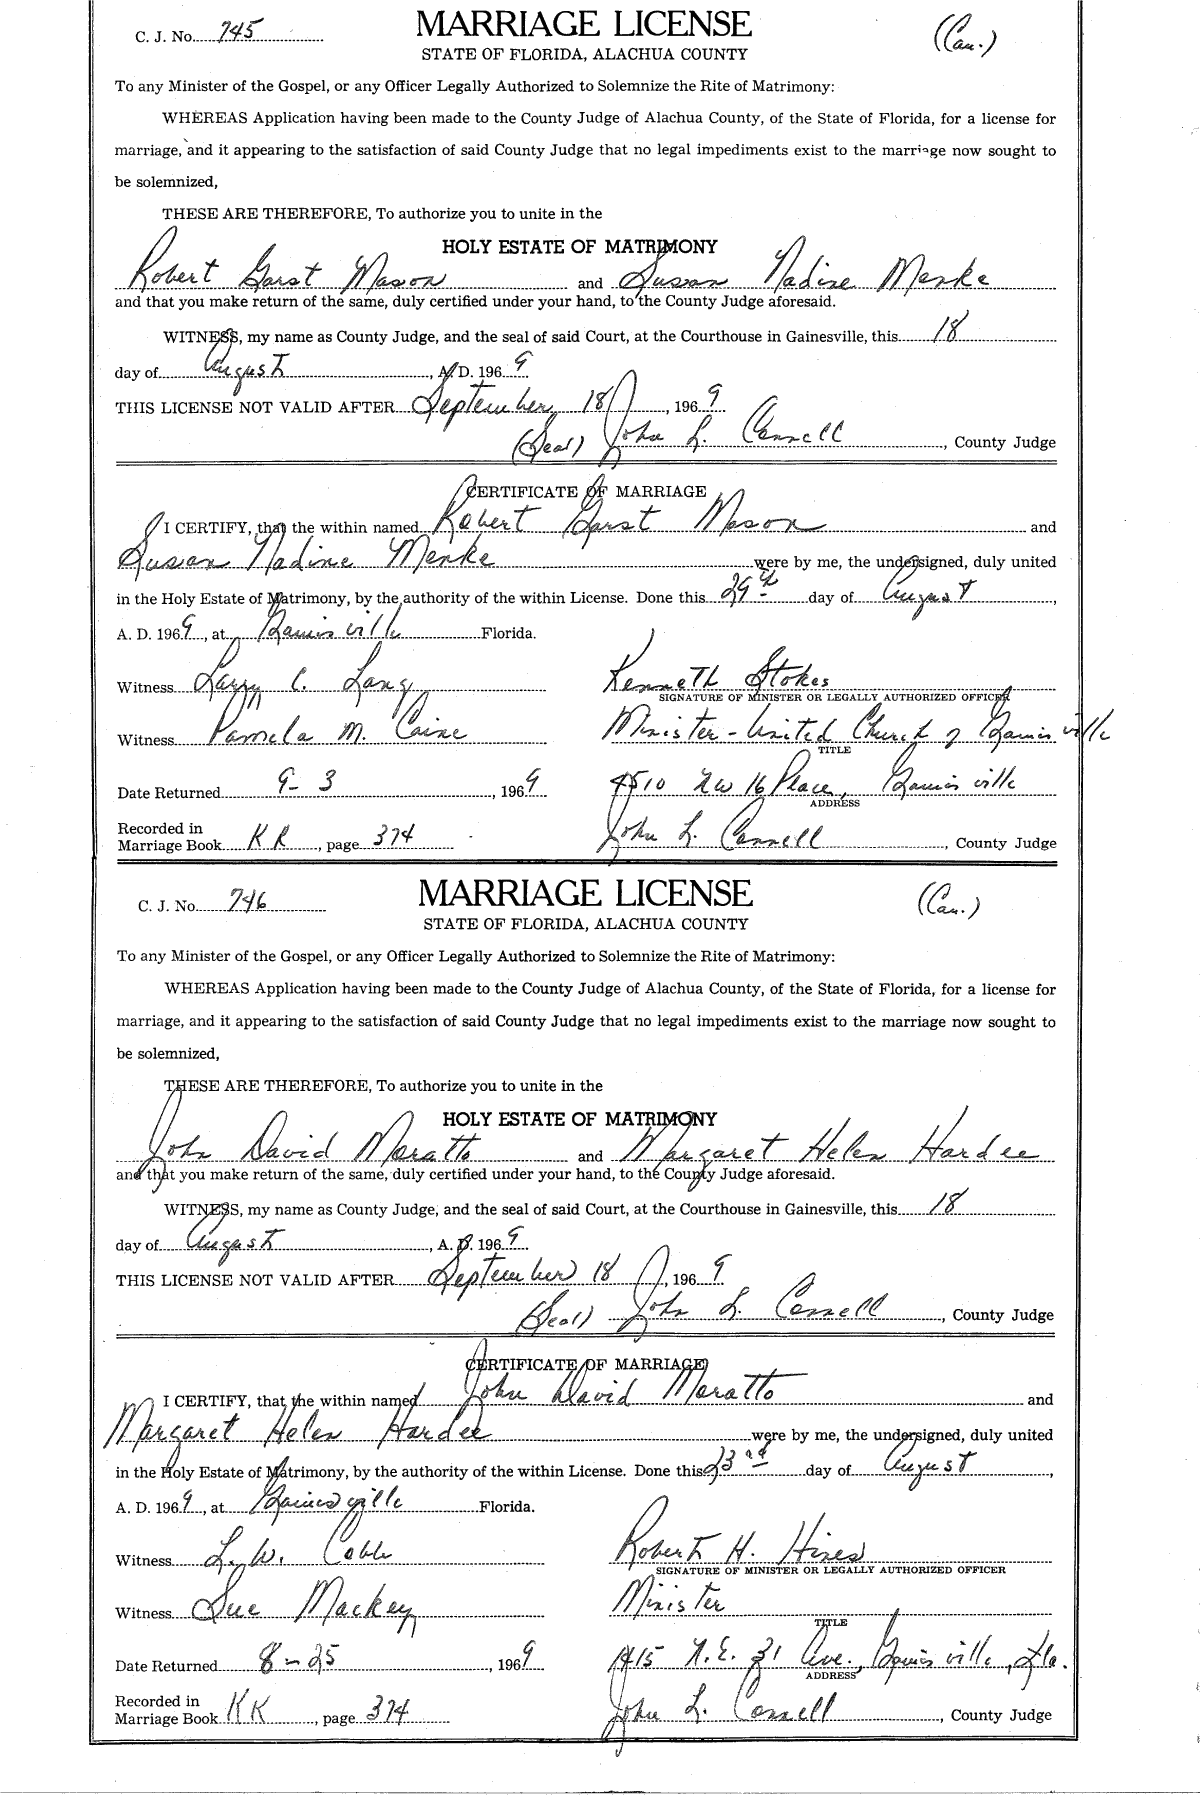 C. J. No. 745
MARRIAGE LICENSE
(Cau.)
STATE OF FLORIDA, ALACHUA COUNTY
To any Minister of the Gospel, or any Officer Legally Authorized to Solemnize the Rite of Matrimony:
WHEREAS Application having been made to the County Judge of Alachua County, of the State of Florida, for a license for
marriage, and it appearing to the satisfaction of said County Judge that no legal impediments exist to the marriage now sought to
be solemnized,
THESE ARE THEREFORE, To authorize you to unite in the
HOLY ESTATE OF MATRIMONY
Robert Garst Mason and Susan Nadine Menke
and that you make return of the same, duly certified under your hand, to the County Judge aforesaid.
WITNESS, my name as County Judge, and the seal of said Court, at the Courthouse in Gainesville, this 18
day of August, A. D. 1969
THIS LICENSE NOT VALID AFTER September 18, 1969
(Seal) John L. Connell, County Judge
CERTIFICATE OF MARRIAGE
I CERTIFY, that the within named Robert Garst Mason and
Susan Nadine Menke were by me, the undersigned, duly united
in the Holy Estate of Matrimony, by the authority of the within License. Done this 29th day of August,
A. D. 1969, at Gainesville Florida.
Witness Larry C. Lang
Kenneth Stokes
SIGNATURE OF MINISTER OR LEGALLY AUTHORIZED OFFICER
Witness Pamela M. Caine
Minister - United Church of Gainesville
TITLE
Date Returned 9-3, 1969
4510 NW 16 Place, Gainesville
ADDRESS
Recorded in
Marriage Book KK, page 374
John L. Connell, County Judge
C. J. No. 746
MARRIAGE LICENSE
(Cau.)
STATE OF FLORIDA, ALACHUA COUNTY
To any Minister of the Gospel, or any Officer Legally Authorized to Solemnize the Rite of Matrimony:
WHEREAS Application having been made to the County Judge of Alachua County, of the State of Florida, for a license for
marriage, and it appearing to the satisfaction of said County Judge that no legal impediments exist to the marriage now sought to
be solemnized,
THESE ARE THEREFORE, To authorize you to unite in the
HOLY ESTATE OF MATRIMONY
John David Moratto and Margaret Helen Hardee
and that you make return of the same, duly certified under your hand, to the County Judge aforesaid.
WITNESS, my name as County Judge, and the seal of said Court, at the Courthouse in Gainesville, this 18
day of August, A. D. 1969
THIS LICENSE NOT VALID AFTER September 18, 1969
(Seal) John L. Connell, County Judge
CERTIFICATE OF MARRIAGE
I CERTIFY, that the within named John David Moratto and
Margaret Helen Hardee were by me, the undersigned, duly united
in the Holy Estate of Matrimony, by the authority of the within License. Done this 23rd day of August,
A. D. 1969, at Gainesville Florida.
Witness L. W. Cobb
Robert H. Hines
SIGNATURE OF MINISTER OR LEGALLY AUTHORIZED OFFICER
Witness Sue Mackey
Minister
TITLE
Date Returned 8-25, 1969
1415 N.E. 31 Ave., Gainesville, Fla.
ADDRESS
Recorded in
Marriage Book KK, page 374
John L. Connell, County Judge